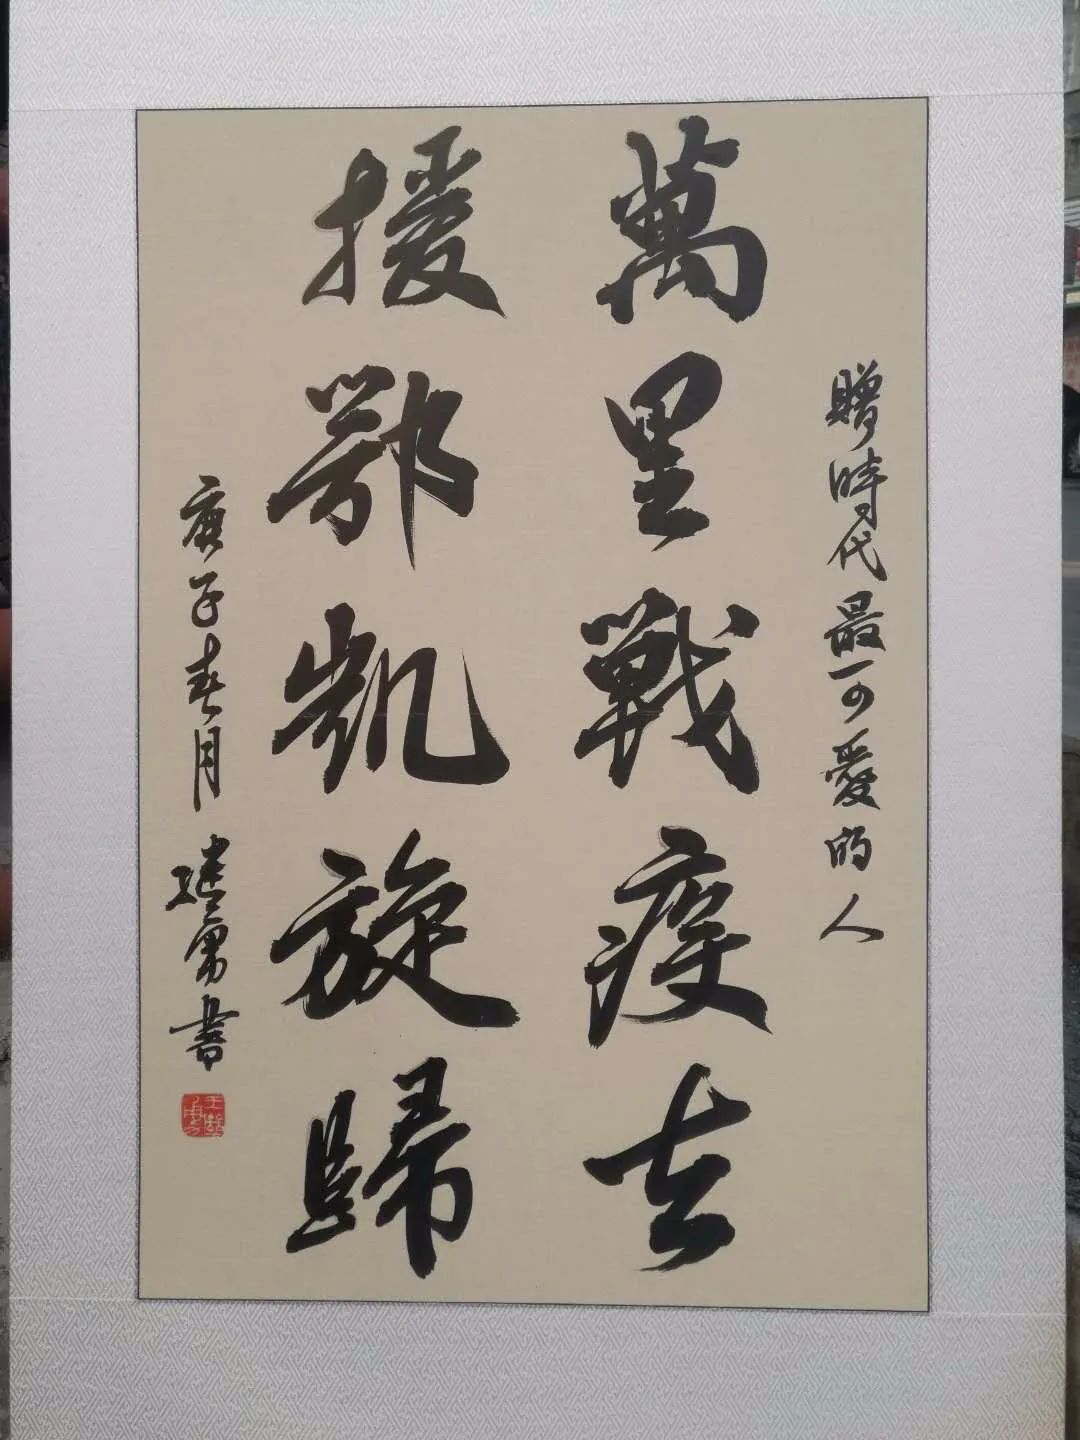 贈時代最可愛的人
萬里戰疫去
援鄂凱旋歸
庚子春月 继勇書
王繼勇